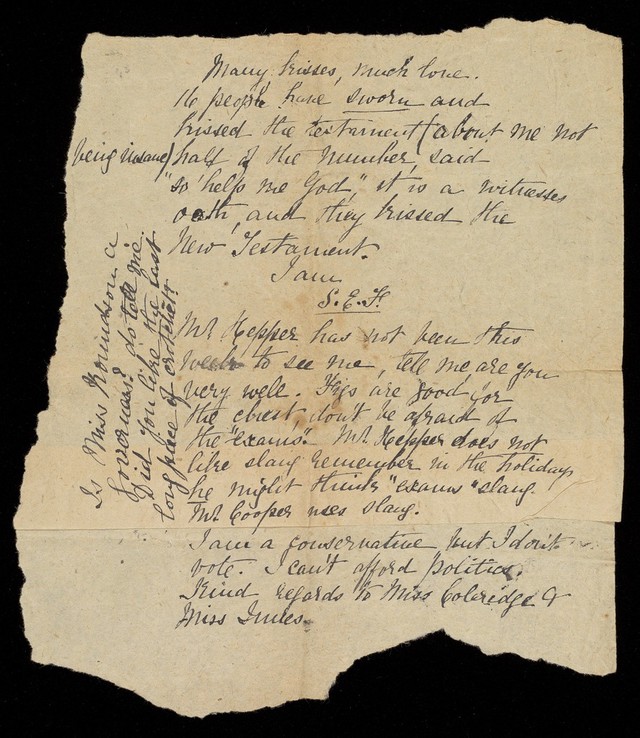 Many kisses, much love.
16 people have sworn and
kissed the testament (about me not
being insane) half of the number, said
"so help me God," it is a witnesses
oath, and they kissed the
New Testament.
I am
S. E. H
Mr Hepper has not been this
week to see me, tell me are you
very well. Figs are good for
the chest, don't be afraid of
the "exams". Mr Hepper does not
like slang remember in the holidays
he might think "exams" slang.
Mr. Cooper uses slang.
I am a conservative but I don't
vote. I can't afford politics.
Kind regards to Miss Coleridge &
Miss Innes.
Is Miss a
Governess? do tell me.
Did you like the last
long piece of crotchet?